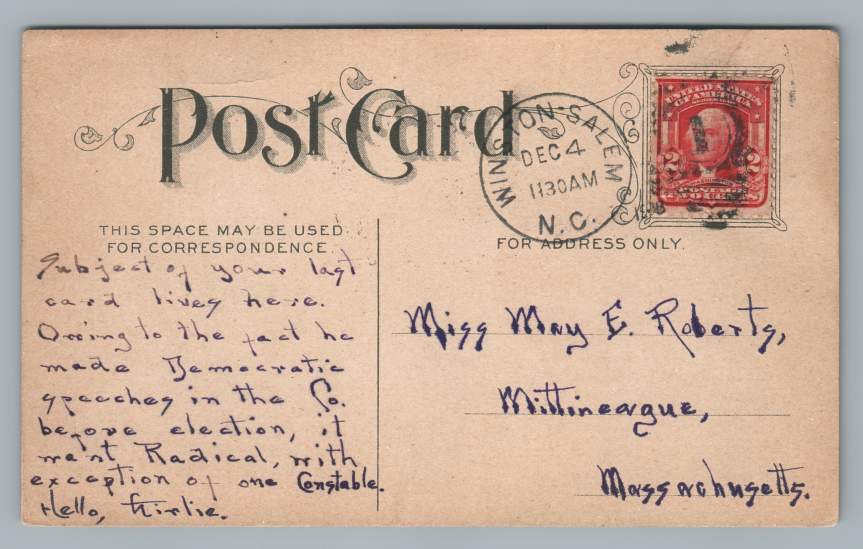 Post Card
WINSTON-SALEM
DEC 4
1130AM
N.C.
UNITED STATES
OF AMERICA
2 2
POSTAGE
TWO CENTS
THIS SPACE MAY BE USED
FOR CORRESPONDENCE
FOR ADDRESS ONLY.
Subject of your last
card lives here.
Owing to the fact he
made Democratic
speeches in the Co.
before election, it
went Radical, with
exception of one Constable.
Hello, Girlie.
Miss May E. Roberts,
Mittineague,
Massachusetts.